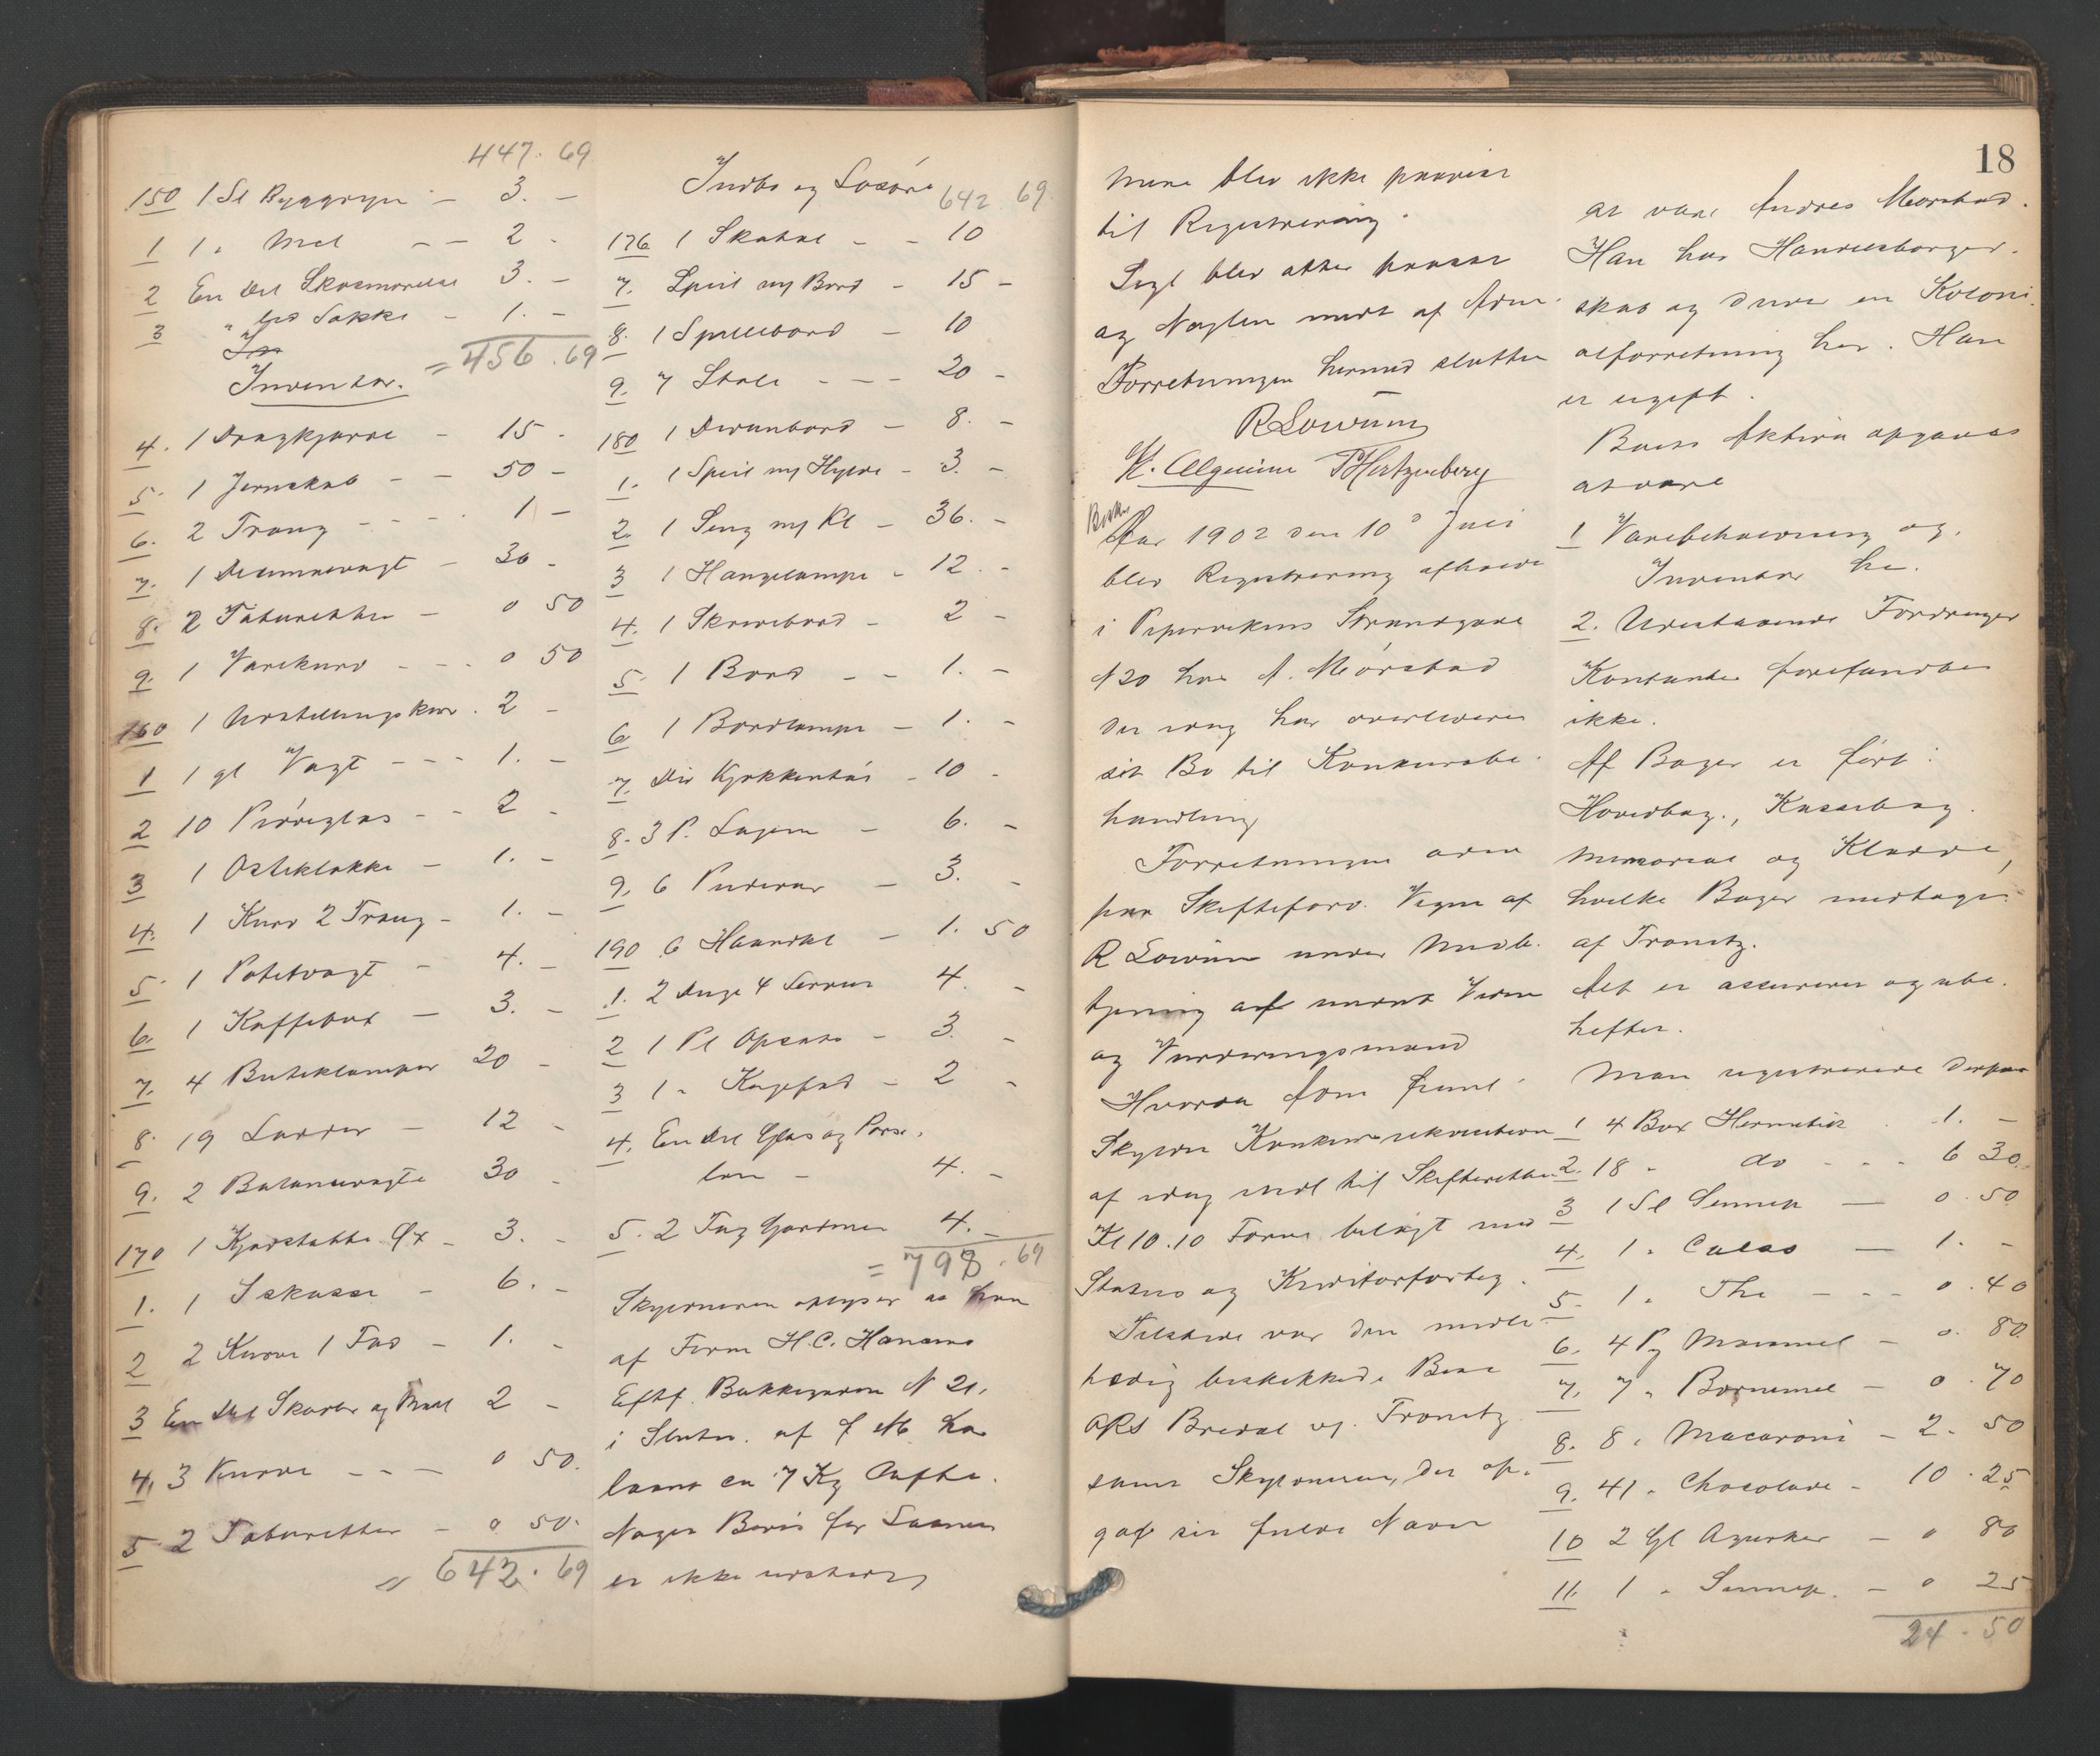 447. 69
150 1 Sk Byggryn – 3. –
1 1 " Mel – – 2 –
2 En Del Skosmørelse 3. –
3 " Sække – 1. –
= 456. 69
Inventar.
4. 1 Dragkjærre – 15 –
5. 1 Jernskab – – 50 –
6. 2 Traug – – – 1 –
7. 1 Decimalvægt – 30 –
8. 2 Taburetter – 0 50
9. 1 Varekurv – – – 0 50
160 1 Udstillingskur. 2 –
1 1 gl Vægt – – – 1. –
2 10 Prøveglas – – 2 –
3 1 Osteklokke – 1. –
4. 1 Kurv 2 Traug – 1. –
5. 1 Potetvægt – 4. –
6. 1 Kaffebøt – 3. –
7. 4 Butiklamper 20 –
8. 19 Skuffer – 12 –
9. 2 Balancevægte 30 –
170 1 Kjødstabbe Øx – 3. –
1. 1 Iskasse – 6. –
2 2 Kurve 1 Fad – 1. –
3 En Del og Maal 2 –
4. 3 Kurve – – – 0 50.
5 2 Taburetter – 0 50.
= 642. 69
Indbo og Løsøre
642. 69.
176 1 Skatol – – 10
7. Speil m/ Bord – 15 –
8. 1 Spillebord – 10
9. 7 Stole – – – 20 –
180 1 Divanbord – 8. –
1. 1 Speil m/ Hylde – 3. –
2. 1 Seng m/ Kl – 36. –
3 1 Hængelampe – 12 –
4. 1 Skrivebord – 2 –
5. 1 Bord – – 1. –
6 1 Bordlampe – 1. –
7. Div Kjøkkentøi – 10 –
8. 3 P. Lagen – 6. –
9. 6 Pudevar – 3. –
190 6 Haandkl – 1. 50
1. 2 Duge 4 Serviet 4. –
2 1 Pl Opsats – 3. –
3 1 " Kagefad – 2 –
4. En Del Glas og Porse.
læn – 4. –
5. 2 Fag Gardiner 4. –
= 798. 69
Skyldneren oplyser at han
af Firma H. C. Hansens
Eftf. Bakkegaden N 21,
i Slutn. af f. M. har
laant ca 7 Kg Caffe.
Nogen Bevis for Laanet
er ikke udstedt
18
Mere blev ikke paavist
til Registrering.
Segl blev atter paasat
og Nøglen medt af Adm.
Forretningen hermed sluttet
R Løwum
T Hertzenberg
Aar 1902 den 10d Juli
blev Registrering afholdt
i Pipervikens Strandgade
N 20 hos A. Mørstad
der idag har overleveret
sit Bo til Konkursbe-
handling
Forretningen adm
paa Skifteforv. Vegne af
R Løwum under Medb-
tjening af Vidne
og Vurderingsmænd
Hvorda Adm freml
Skyldn Konkursrekvisition
af idag indl til Skifteretten
Kl 10.10 Form belagt med
Status og Kreditorforteg.
Tilstede var den midler-
tidig beskikkede Best
ORS Bredal v/ Tronitz
samt Skyldneren, der op-
gav sit fulde Navn
at være Andres Mørstad.
Han har Handelsborger-
skab og driver en Koloni-
alforretning her. Han
er ugift.
Boets Aktiva opgaves
at være
1 Varebeholdning og
Inventar her.
2. Udestaaende Fordringer
Kontanter forefandtes
ikke.
Af Bøger er ført:
Hovedbog, Kassebog.
Memorial og Kladde,
hvilke Bøger medtoges
af Tronitz.
Alt er assureret og ube-
heftet.
Man registrerede derpaa
1 4 Box Hermetik . 1. –
2. 18 " do – – – 6 30.
3 1 Sk Sennep – 0. 50
4. 1 " Cacao – 1. –
5. 1 " The – – – 0. 40
6. 4 Pg Maismel – 0. 80
7. 7 " Bornemel – 0. 70
8. 8 " Macaroni – 2. 50
9. 41 " Chocolade – 10. 25
10 2 Gl Agurker – 0 80
11. 1 " Sennep. – 0 25
24. 50